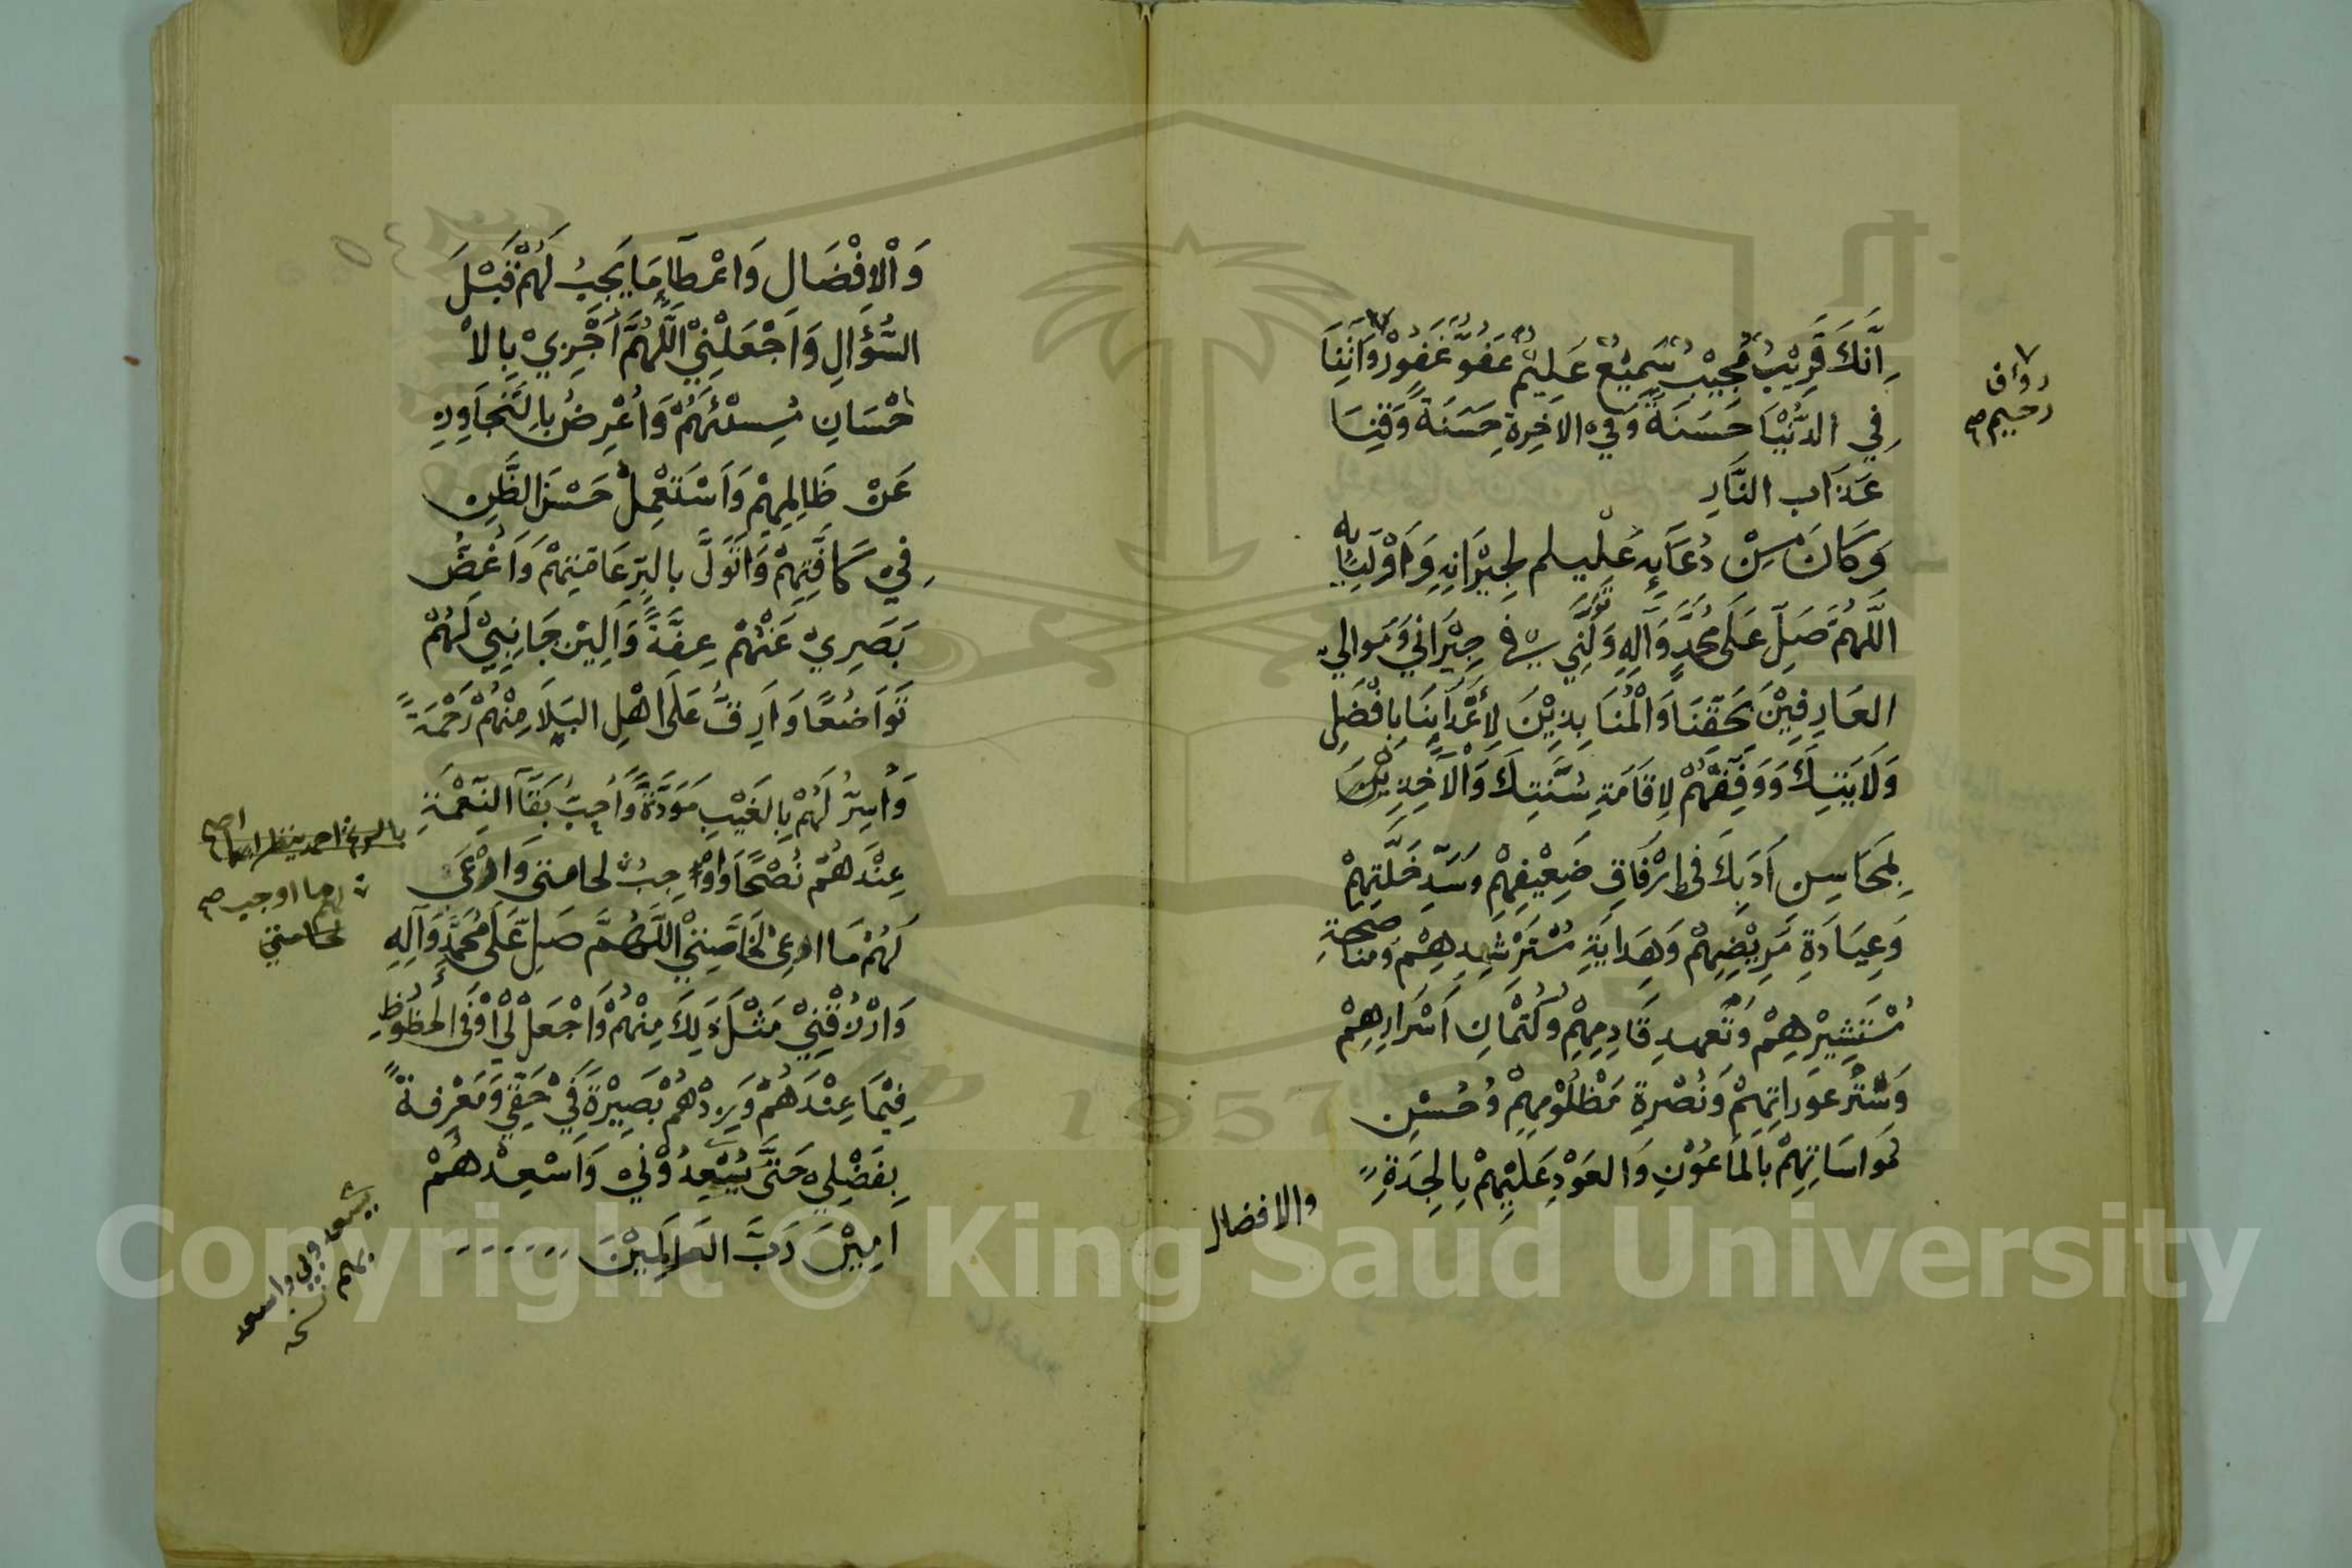 إِنَّكَ قَرِيْبٌ مُجِيْبٌ سَمِيْعٌ عَلِيْمٌ عَفُوٌّ غَفُوْرٌ وَآتِنَا
فِي الدُّنْيَا حَسَنَةً وَفِي الآخِرَةِ حَسَنَةً وَقِنَا
عَذَابَ النَّارِ
وَكَانَ مِنْ دُعَائِهِ عَلَيْلِسلم لِجِيْرَانِهِ وَأَوْلِيَائِهِ
اللَّهُمَّ صَلِّ عَلَى مُحَمَّدٍ وَآلِهِ وَتَوَلَّنِي فِي جِيْرَانِي وَمَوَالِي
العَارِفِيْنَ بِحَقِّنَا وَالْمُنَابِذِيْنَ لِأَعْدَائِنَا بِأَفْضَلِ
وَلَايَتِكَ وَوَفِّقْهُمْ لِإِقَامَةِ سُنَّتِكَ وَالْأَخِذِيْنَ
بِمَحَاسِنِ أَدَبِكَ فِي إِرْفَاقِ ضَعِيْفِهِمْ وَسَدِّ خَلَّتِهِمْ
وَعِيَادَةِ مَرِيْضِهِمْ وَهِدَايَةِ مُسْتَرْشِدِهِمْ وَمُنَاصَحَةِ
مُسْتَشِيْرِهِمْ وَتَعَهُّدِ قَادِمِهِمْ وَكِتْمَانِ أَسْرَارِهِمْ
وَسَتْرِ عَوْرَاتِهِمْ وَنُصْرَةِ مَظْلُوْمِهِمْ وَحُسْنِ
مُوَاسَاتِهِمْ بِالمَاعُوْنِ وَالعَوْدِ عَلَيْهِمْ بِالجِدَةِ
والافضال
رؤف
رحيم صح
وَالْإِفْضَالِ وَإِعْطَآءِ مَا يَجِبُ لَهُمْ قَبْلَ
السُّؤَالِ وَاجْعَلْنِيْ اللَّهُمَّ أَجْزِيْ بِالْإِ
حْسَانِ مُسِيْئَهُمْ وَأُعْرِضُ بِالتَّجَاوُزِ
عَنْ ظَالِمِهِمْ وَأَسْتَعْمِلُ حُسْنَ الظَّنِّ
فِيْ كَافَّتِهِمْ وَأَتَوَلَّ بِالبِرِّ عَامَّتَهُمْ وَأَغُضُّ
بَصَرِيْ عَنْهُمْ عِفَّةً وَأُلِيْنُ جَانِبِيْ لَهُمْ
تَوَاضُعًا وَأَرِقُّ عَلَى أَهْلِ البَلَاءِ مِنْهُمْ رَحْمَةً
وَأُسِرُّ لَهُمْ بِالغَيْبِ مَوَدَّةً وَأُحِبُّ بَقَآءَ النِّعْمَةِ
عِنْدَهُمْ نُصْحًا وَأُوْجِبُ لحامتي وَارْعَى
لَهُمْ مَا ارعى لِخَاصَّتِيْ اللَّهُمَّ صَلِّ عَلَى مُحَمَّدٍ وَآلِهِ
وَارْزُقْنِيْ مِثْلَ ذَلِكَ مِنْهُمْ وَاجْعَلْ لِيْ أَوْفَى الحُظُوْظِ
فِيْمَا عِنْدَهُمْ وَزِدْهُمْ بَصِيْرَةً فِيْ حَقِّيْ وَمَعْرِفَةً
بِفَضْلِيْ حَتَّى يُسْعِدُوْنِيْ وَأَسْعِدْهُمْ
امِيْنَ رَبَّ العَالَمِيْنَ
لهم ما اوجب صح
لحامتي
يسعدو بي واسعد
بهم
نسخه
1957
Copyright © King Saud University